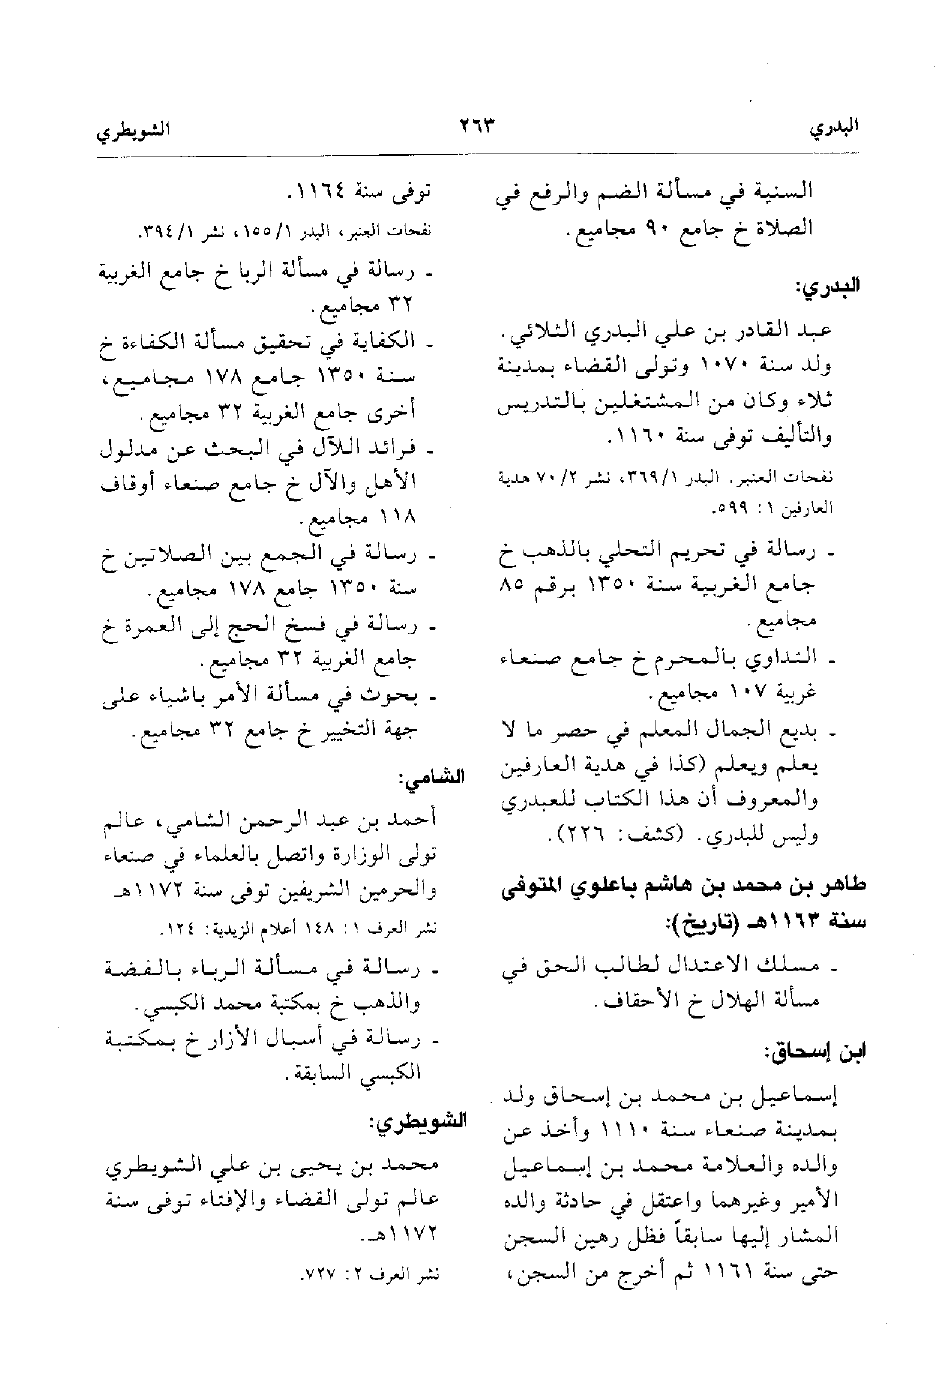 البدري
٢٦٣
الشويطري
السنية في مسألة الضم والرفع في
الصلاة خ جامع ٩٠ مجاميع.
البدري:
عبد القادر بن علي البدري الثلائي.
ولد سنة ١٠٧٠ وتولى القضاء بمدينة
ثلاء وكان من المشتغلين بالتدريس
والتأليف توفى سنة ١١٦٠.
نفحات العنبر. البدر ٣٦٩/١، نشر ٧٠/٢ هدية
العارفين ١: ٥٩٩.
- رسالة في تحريم التحلي بالذهب خ
جامع الغربية سنة ١٣٥٠ برقم ٨٥
مجاميع.
- التداوي بالمحرم خ جامع صنعاء
غربية ١٠٧ مجاميع.
- بديع الجمال المعلم في حصر ما لا
يعلم ويعلم (كذا في هدية العارفين
والمعروف أن هذا الكتاب للعبدري
وليس للبدري. (كشف: ٢٢٦).
طاهر بن محمد بن هاشم باعلوي المتوفى
سنة ١١٦٣هـ (تاريخ):
- مسلك الاعتدال لطالب الحق في
مسألة الهلال خ الأحقاف.
ابن إسحاق:
إسماعيل بن محمد بن إسحاق ولد
بمدينة صنعاء سنة ١١١٠ وأخذ عن
والده والعلامة محمد بن إسماعيل
الأمير وغيرهما واعتقل في حادثة والده
المشار إليها سابقاً فظل رهين السجن
حتى سنة ١١٦١ ثم أخرج من السجن،
توفى سنة ١١٦٤.
نفحات العنبر، البدر ١٥٥/١، نشر ٣٩٤/١.
- رسالة في مسألة الربا خ جامع الغربية
٣٢ مجاميع.
- الكفاية في تحقيق مسألة الكفاءة خ
سنة ١٣٥٠ جامع ١٧٨ مجاميع،
أخرى جامع الغربية ٣٢ مجاميع.
- فرائد اللآل في البحث عن مدلول
الأهل والآل خ جامع صنعاء أوقاف
١١٨ مجاميع.
- رسالة في الجمع بين الصلاتين خ
سنة ١٣٥٠ جامع ١٧٨ مجاميع.
- رسالة في فسخ الحج إلى العمرة خ
جامع الغربية ٣٢ مجاميع.
- بحوث في مسألة الأمر باشياء على
جهة التخيير خ جامع ٣٢ مجاميع.
الشامي:
أحمد بن عبد الرحمن الشامي، عالم
تولى الوزارة واتصل بالعلماء في صنعاء
والحرمين الشريفين توفى سنة ١١٧٢هـ
نشر العرف ١: ١٤٨ أعلام الزيدية: ١٢٤.
- رسالة في مسألة الرباء بالفضة
والذهب خ بمكتبة محمد الكبسي.
- رسالة في أسبال الأزار خ بمكتبة
الكبسي السابقة.
الشويطري:
محمد بن يحيى بن علي الشويطري
عالم تولى القضاء والإفتاء توفى سنة
١١٧٢هـ.
نشر العرف ٢: ٧٢٧.